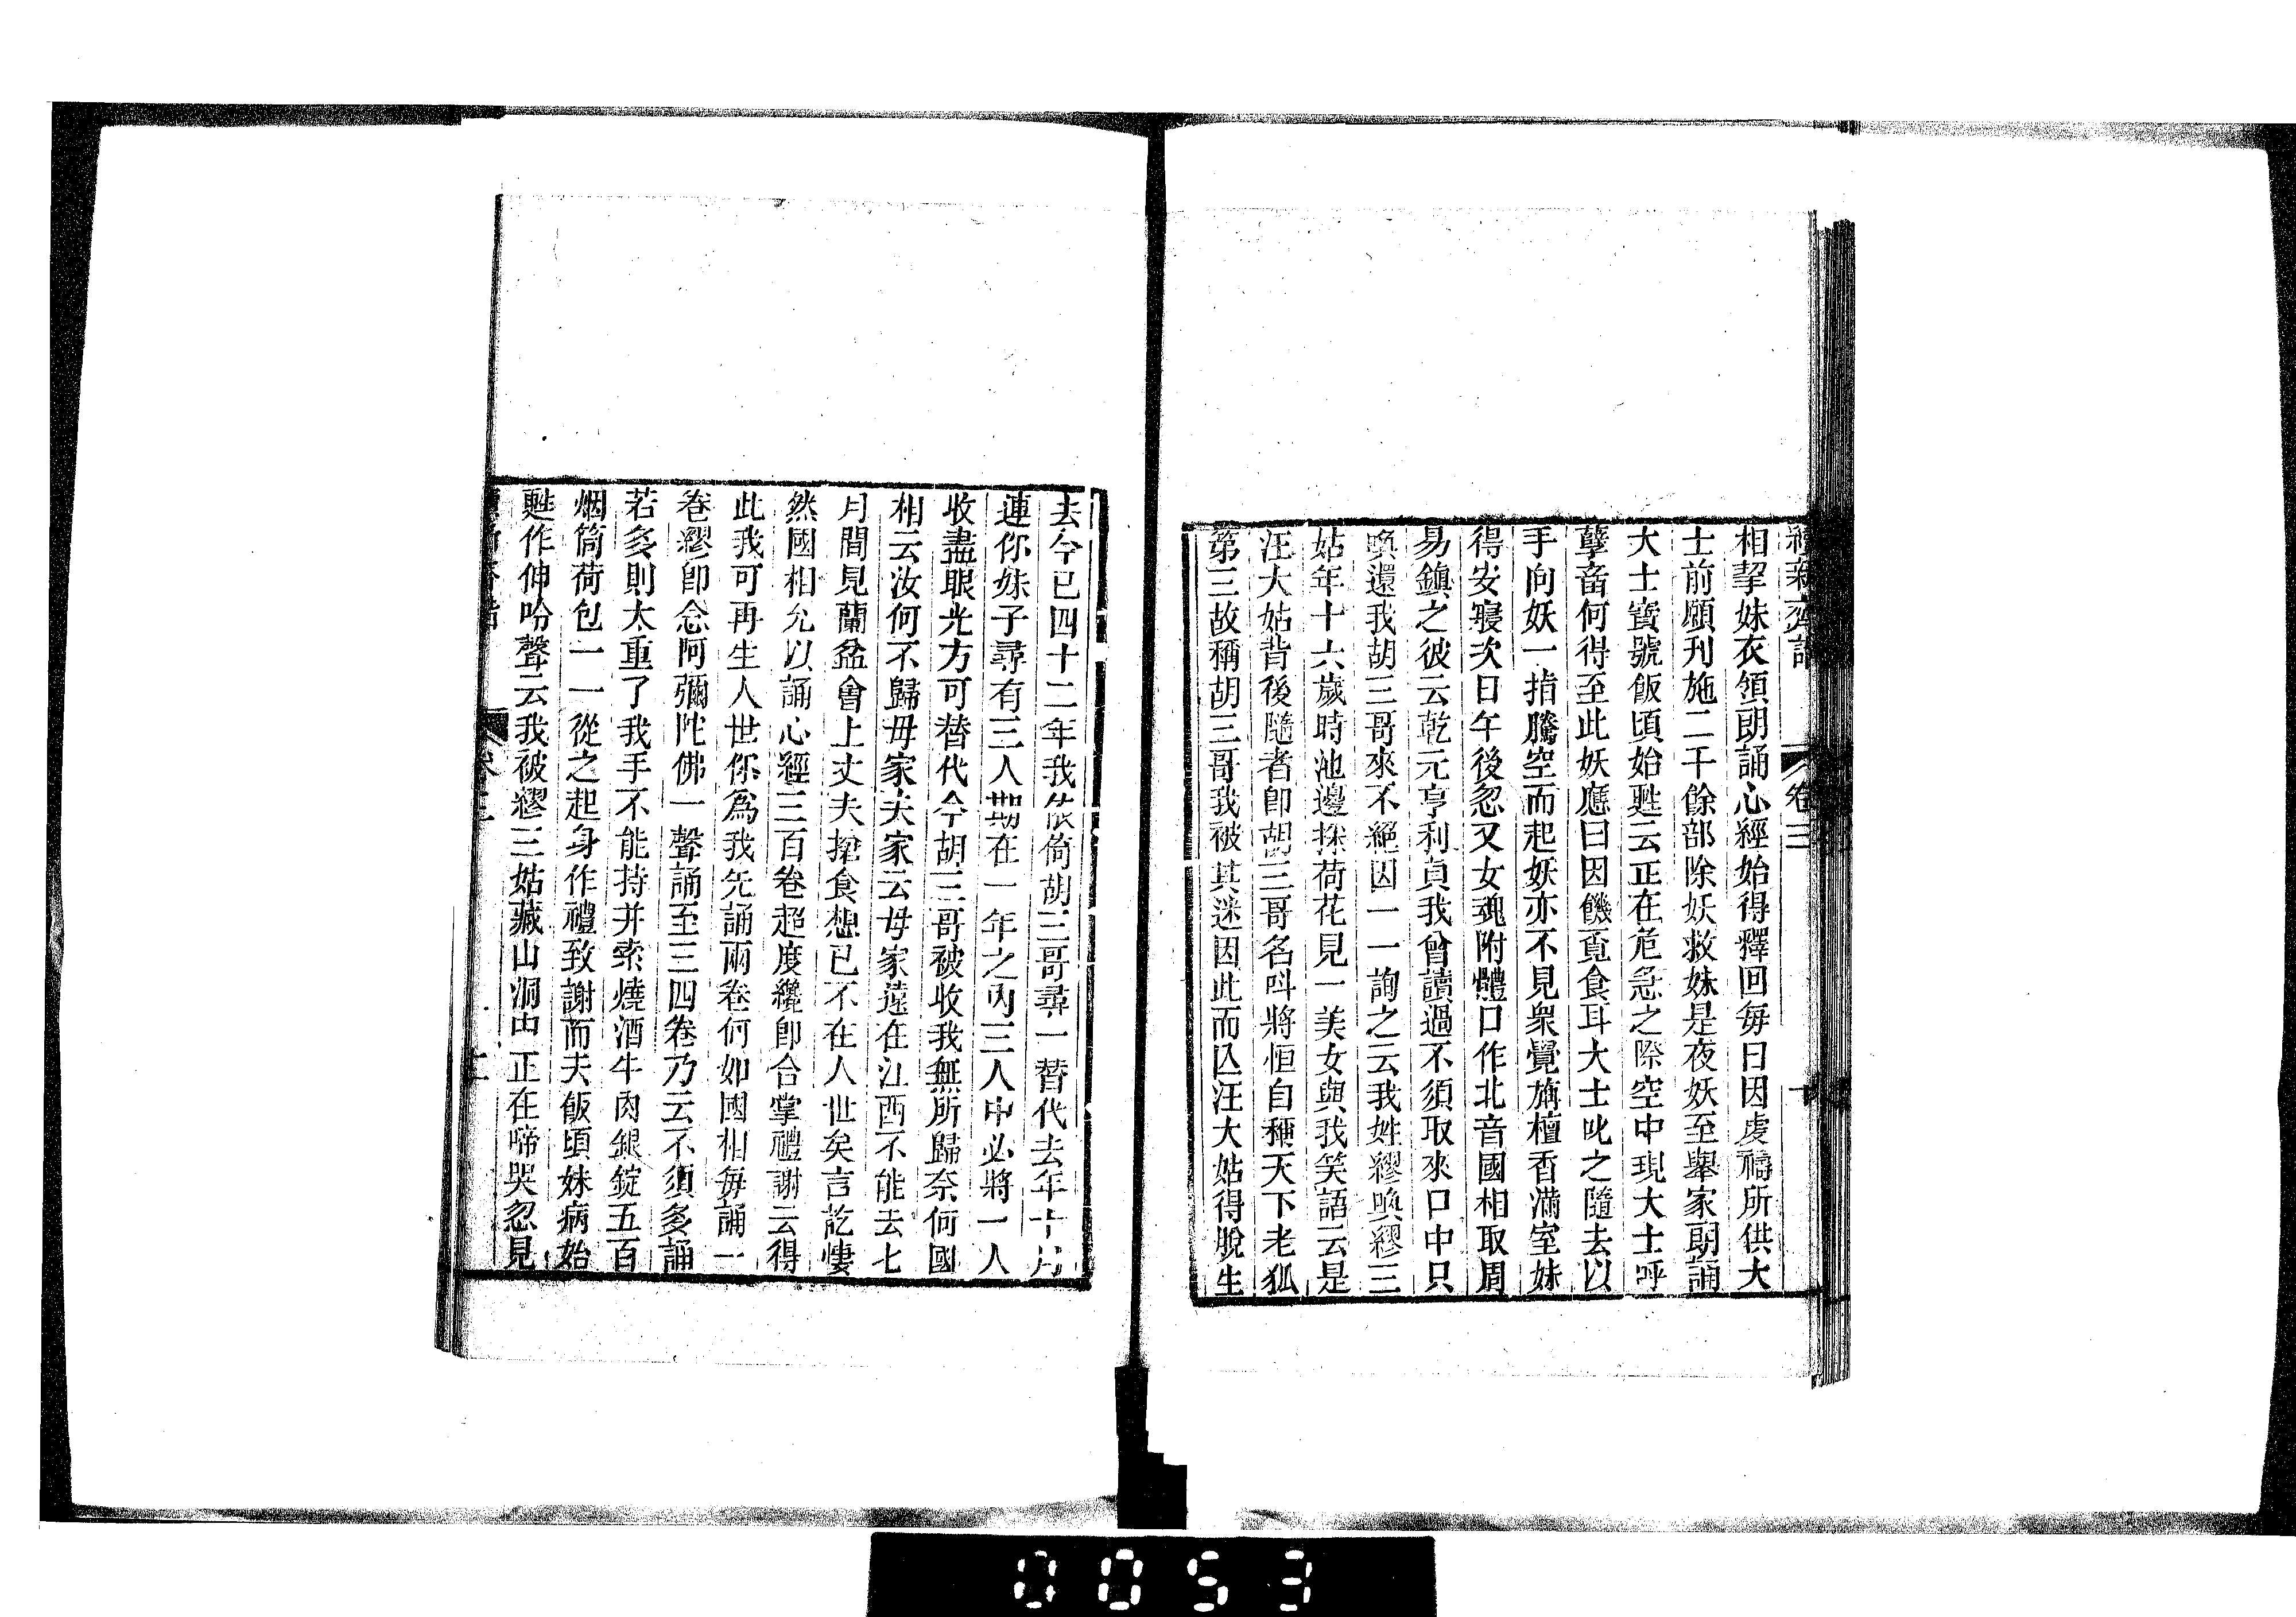 續新齊諧 卷三 十
相挈妹衣領朗誦心經始得釋回每日因虔禱所供大
士前願刋施二千餘部除妖救妹是夜妖至舉家朗誦
大士寳號飯頃始甦云正在危急之際空中現大士呼
孽畜何得至此妖應曰因饑覔食耳大士叱之隨去以
手向妖一指騰空而起妖亦不見衆覺旃檀香滿室妹
得安寢次日午後忽又女魂附體口作北音國相取周
易鎮之彼云乾元亨利貞我曾讀過不須取來口中只
喚還我胡三哥來不絕因一一詢之云我姓繆喚繆三
姑年十六歲時池邊採荷花見一美女與我笑語云是
汪大姑背後隨者卽胡三哥名呌將恒自稱天下老狐
第三故稱胡三哥我被其迷因此而亾汪大姑得脫生
去今已四十二年我依倚胡三哥尋一替代去年十月
連你妹子尋有三人期在一年之內三人中必將一人
收盡眼光方可替代今胡三哥被收我無所歸奈何國
相云汝何不歸毋家夫家云毋家遠在江西不能去七
月間見蘭盆會上丈夫搶食想已不在人世矣言訖悽
然國相允以誦心經三百卷超度纔卽合掌禮謝云得
此我可再生人世你爲我先誦兩卷何如國相每誦一
卷繆卽念阿彌陀佛一聲誦至三四卷乃云不須多誦
若多則太重了我手不能持并索燒酒牛肉銀錠五百
烟筒荷包一一從之起身作禮致謝而去飯頃妹病始
甦作伸吟聲云我被繆三姑藏山洞中正在啼哭忽見